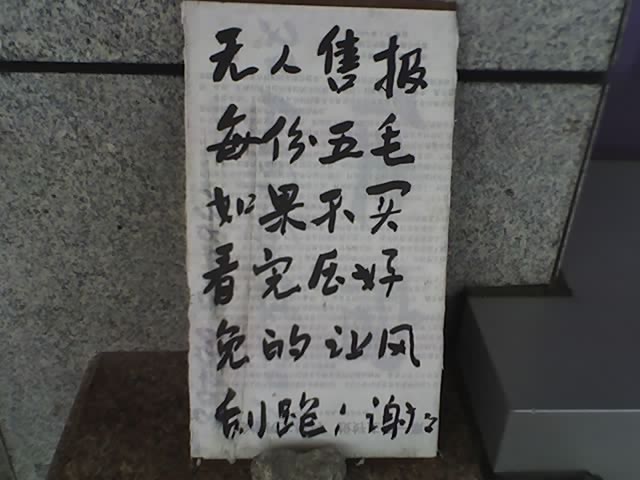 无人售报
每份五毛
如果不买
看完压好
免的让风
刮跑！谢谢